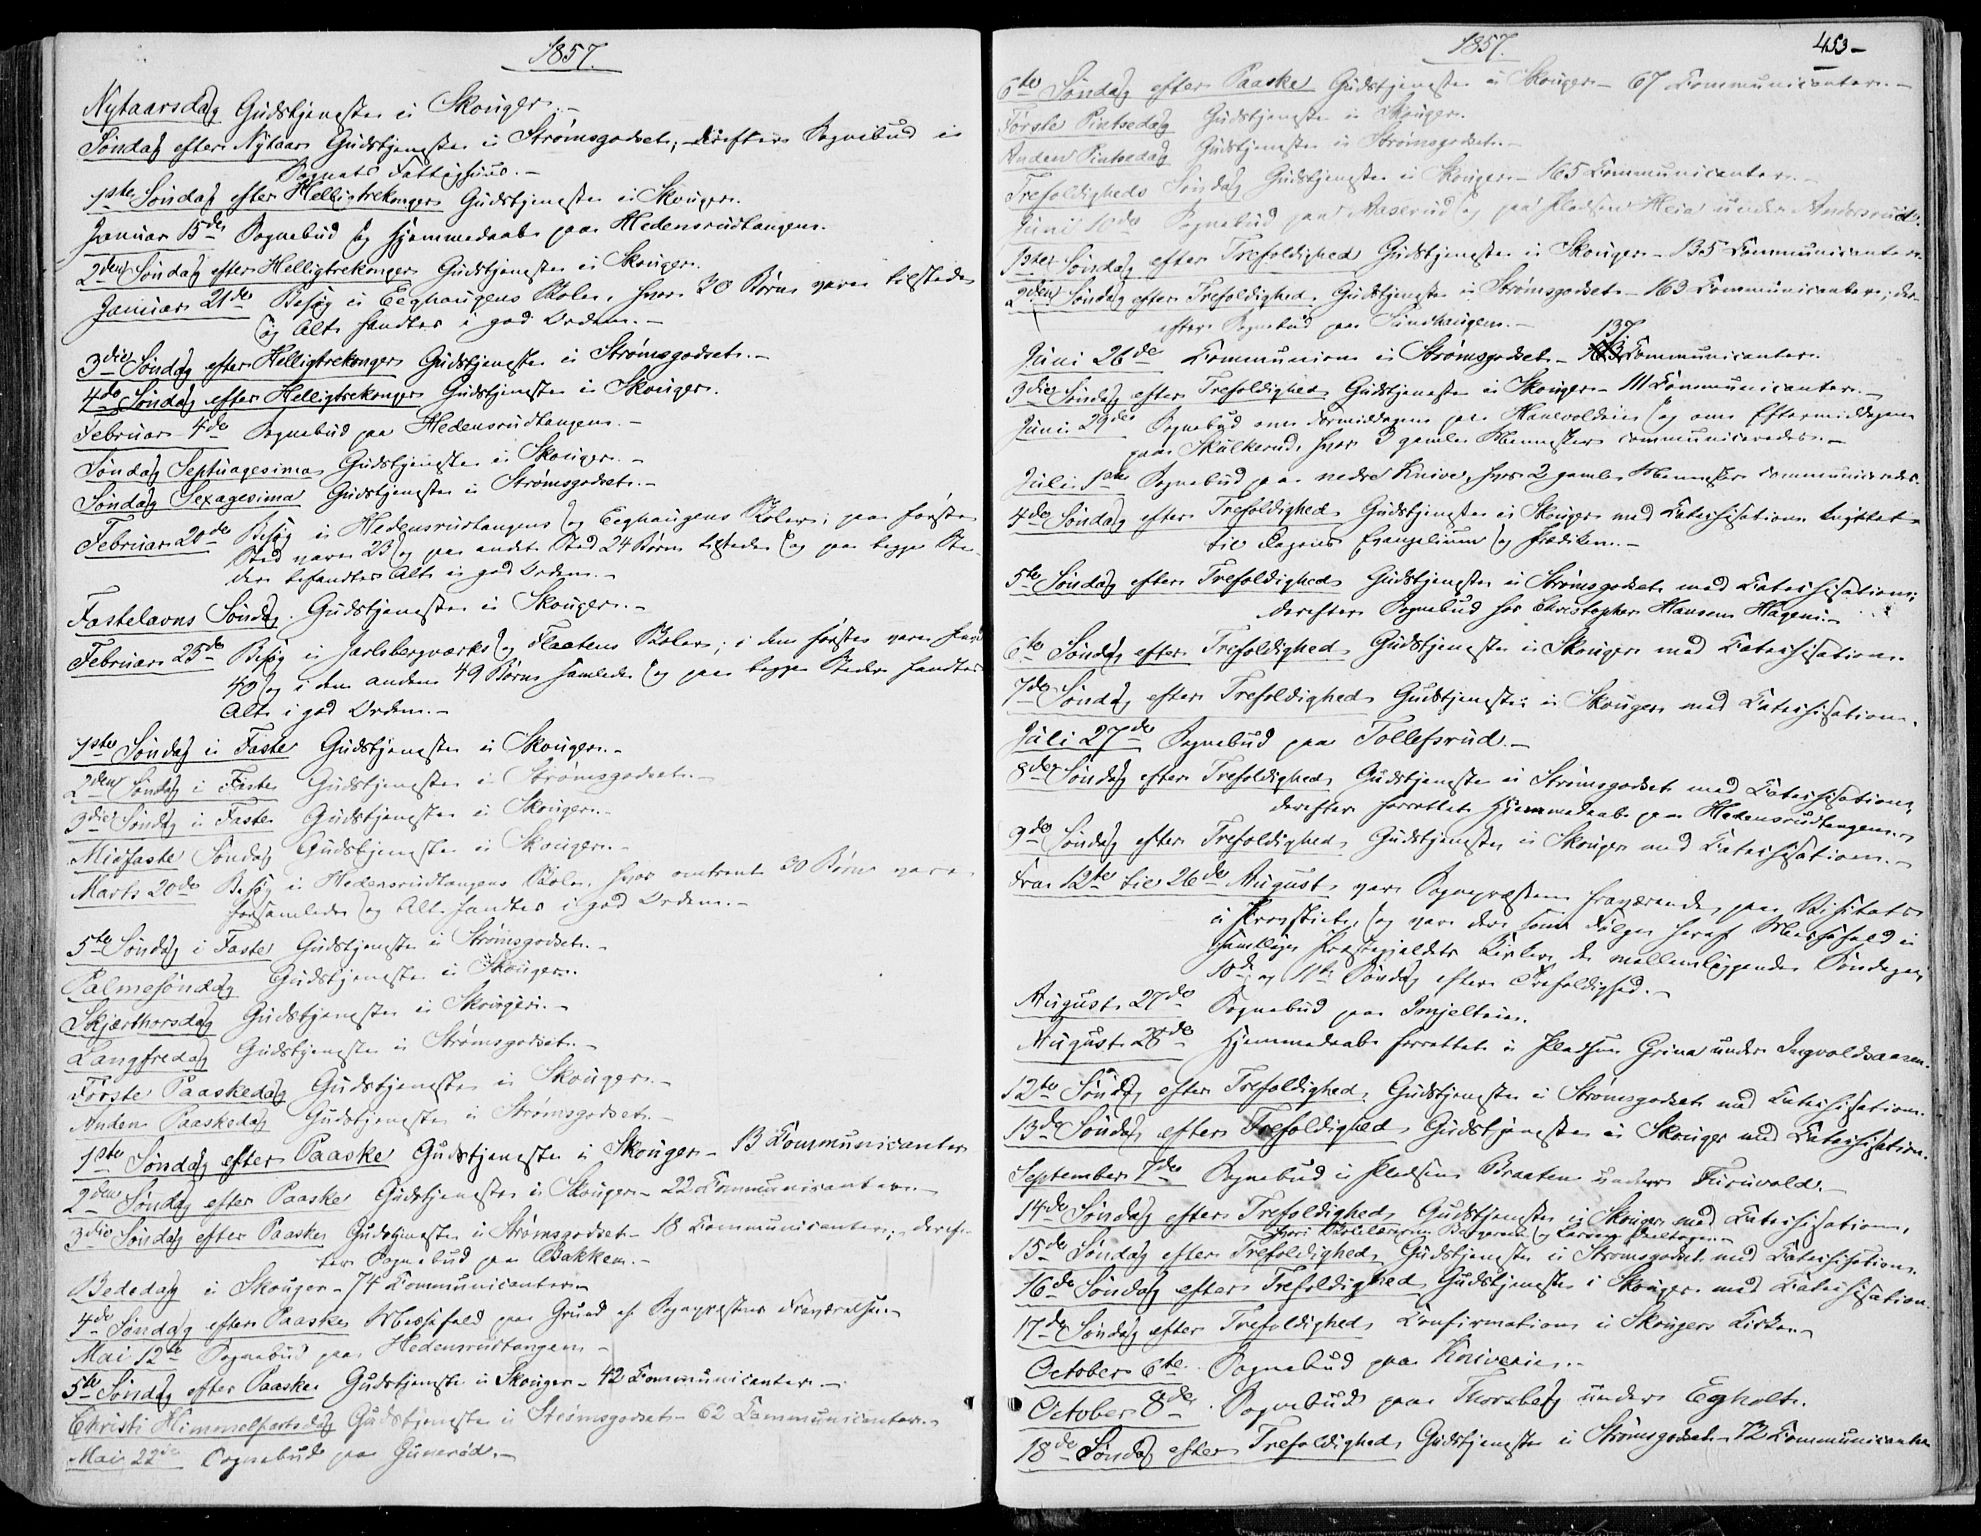 1857.
Nytaarsdag Gudstjeneste i Skouger.-
Søndag efter Nytaar Gudstjeneste i Strømsgodset; derefter Sognebud i
Sognets Fattighuus.-
1ste Søndag efter Helligtrekonger Gudstjeneste i Skouger.
Januar 15de Sognebud og Hjemmedaab paa Hedensrudtangen.
2den Søndag efter Helligtrekonger Gudstjeneste i Skouger.
Januar 21de Besøg i Eeghougens Skole, hvor 20 Børn vare tilstede
og Alt fandtes i god Orden.-
3die Søndag efter Helligtrekonger Gudstjeneste i Strømsgodset.-
4de Søndag efter Helligtrekonger Gudstjeneste i Skouger.
Februar 4de Sognebud paa Hedensrudtangen.-
Søndag Septuagesima Gudstjeneste i Skouger.-
Søndag Sexagesima Gudstjeneste i Strømsgodset.-
Februar 20de Besøg i Hedensrudtangens og Eeghougens Skoler; paa første
Sted vare 23 og paa andet Sted 24 Børn tilstede og paa begge Ste-
der befandtes Alt i god Orden.-
Fastelavns Søndag. Gudstjeneste i Skouger.-
Februar 25de Besøg i Jarlsbergværks og Flaatens Skoler; i den første vare
40 og i den anden 49 Børn samlede og paa begge Steder fandtes
Alt i god Orden.-
1ste Søndag i Faste Gudstjeneste i Skouger.-
2den Søndag i Faste Gudstjeneste i Strømsgodset.-
3die Søndag i Faste Gudstjeneste i Skouger.-
Midfaste Søndag Gudstjeneste i Skouger.-
Marts 20de Besøg i Hedensrudtangens Skole, hvor omtrent 30 Børn vare
forsamlede og Alt fandtes i god Orden.-
5te Søndag i Faste Gudstjeneste i Strømsgodset.-
Palmesøndag Gudstjeneste i Skouger.
Skjærthorsdag Gudstjeneste i Skouger.-
Langfredag Gudstjeneste i Strømsgodset.-
Første Paaskedag Gudstjeneste i Skouger.-
Anden Paaskedag Gudstjeneste i Strømsgodset.-
1ste Søndag efter Paaske Gudstjeneste i Skouger - 13 Communicanter
2den Søndag efter Paaske Gudstjeneste i Skouger - 22 Communicanter.-
3die Søndag efter Paaske Gudstjeneste i Strømsgodset - 18 Communicanter; deref-
ter Sognebud paa Bakken.-
Bededag i Skouger - 74 Communicanter.-
4de Søndag efter Paaske Messefald paa Grund af Sognepræstens Fraværelse.-
Mai 12te Sognebud paa Hedensrudtangen.-
5te Søndag efter Paaske Gudstjeneste i Skouger - 42 Communicanter.-
Christi Himmelfartsdag Gudstjeneste i Strømsgodset - 62 Communicanter.-
Mai 22de Sognebud paa Gunerød.-
1857.
453-
6te Søndag efter Paaske Gudstjeneste i Skouger - 67 Communicanter.-
Første Pintsedag Gudstjeneste i Skouger.
Anden Pintsedag Gudstjeneste i Strømsgodset.-
Trefoldigheds Søndag Gudstjeneste i Skouger - 165 Communicanter.-
Juni 10de Sognebud paa Aaserud og paa Pladsen Heia under Andorsrud.
1ste Søndag efter Trefoldighed Gudstjeneste i Skouger - 135 Communicanter
2den Søndag efter Trefoldighed Gudstjeneste i Strømsgodset - 163 Communicanter; der-
efter Sognebud paa Sundhaugen.-
137
Juni 26de Communion i Strømsgodset - Communicanter.
3die Søndag efter Trefoldighed Gudstjeneste i Skouger - 111 Communicanter.-
Juni 29de Sognebud om Formiddagen paa og om Eftermiddagen
paa Skalkerud, hvor 3 gamle Mennesker communicerede.-
Juli 1ste Sognebud paa nedre Knive, hvor 2 gamle Mennesker communicerede.
4de Søndag efter Trefoldighed Gudstjeneste i Skouger med Catechisation knyttet
til Dagens Evangelium og Prædiken.-
5te Søndag efter Trefoldighed Gudstjeneste i Strømsgodset med Catechisation;
derefter Sognebud hos Christopher Hansen Hagen.-
6te Søndag efter Trefoldighed Gudstjeneste i Skouger med Catechisation.
7de Søndag efter Trefoldighed Gudstjeneste i Skouger med Catechisation.
Juli 27de Sognebud paa Tollefsrud.-
8de Søndag efter Trefoldighed Gudstjeneste i Strømsgodset med Catechisation,
derefter forrettet Hjemmedaab paa Hedensrudtangen.-
9de Søndag efter Trefoldighed Gudstjeneste i Skouger med Catechisation.-
Fra 12te til 26de August var Sognepræsten fraværende paa Visitats
i Provstiet, og var der som Følge heraf Messefald i
samtlige Præstegjeldets Kirker de mellemliggende Søndage,
10de og 11te Søndag efter Trefoldighed.-
August 27de Sognebud paa Imjelteie.
August 28de Hjemmedaab forrettet i Pladsen Grina under Ingvoldsaasen.
12te Søndag efter Trefoldighed, Gudstjeneste i Strømsgodset med Catechisation.
13de Søndag efter Trefoldighed Gudstjeneste i Skouger med Catechisation.
September 7de Sognebud i Pladsen Braaten under Furuvald.-
14de Søndag efter Trefoldighed Gudstjeneste i Skouger med Catechisation,
15de Søndag efter Trefoldighed Gudstjeneste i Strømsgodset med Catechisation.
16de Søndag efter Trefoldighed Gudstjeneste i Skouger med Catechisation.
17de Søndag efter Trefoldighed Confirmation i Skougers Kirke.-
October 6te Sognebud paa Kniveeie.-
October 8de. Sognebud paa Thorsberg under Egholt.
18de Søndag efter Trefoldighed Gudstjeneste i Strømsgodset - 72 Communicanter